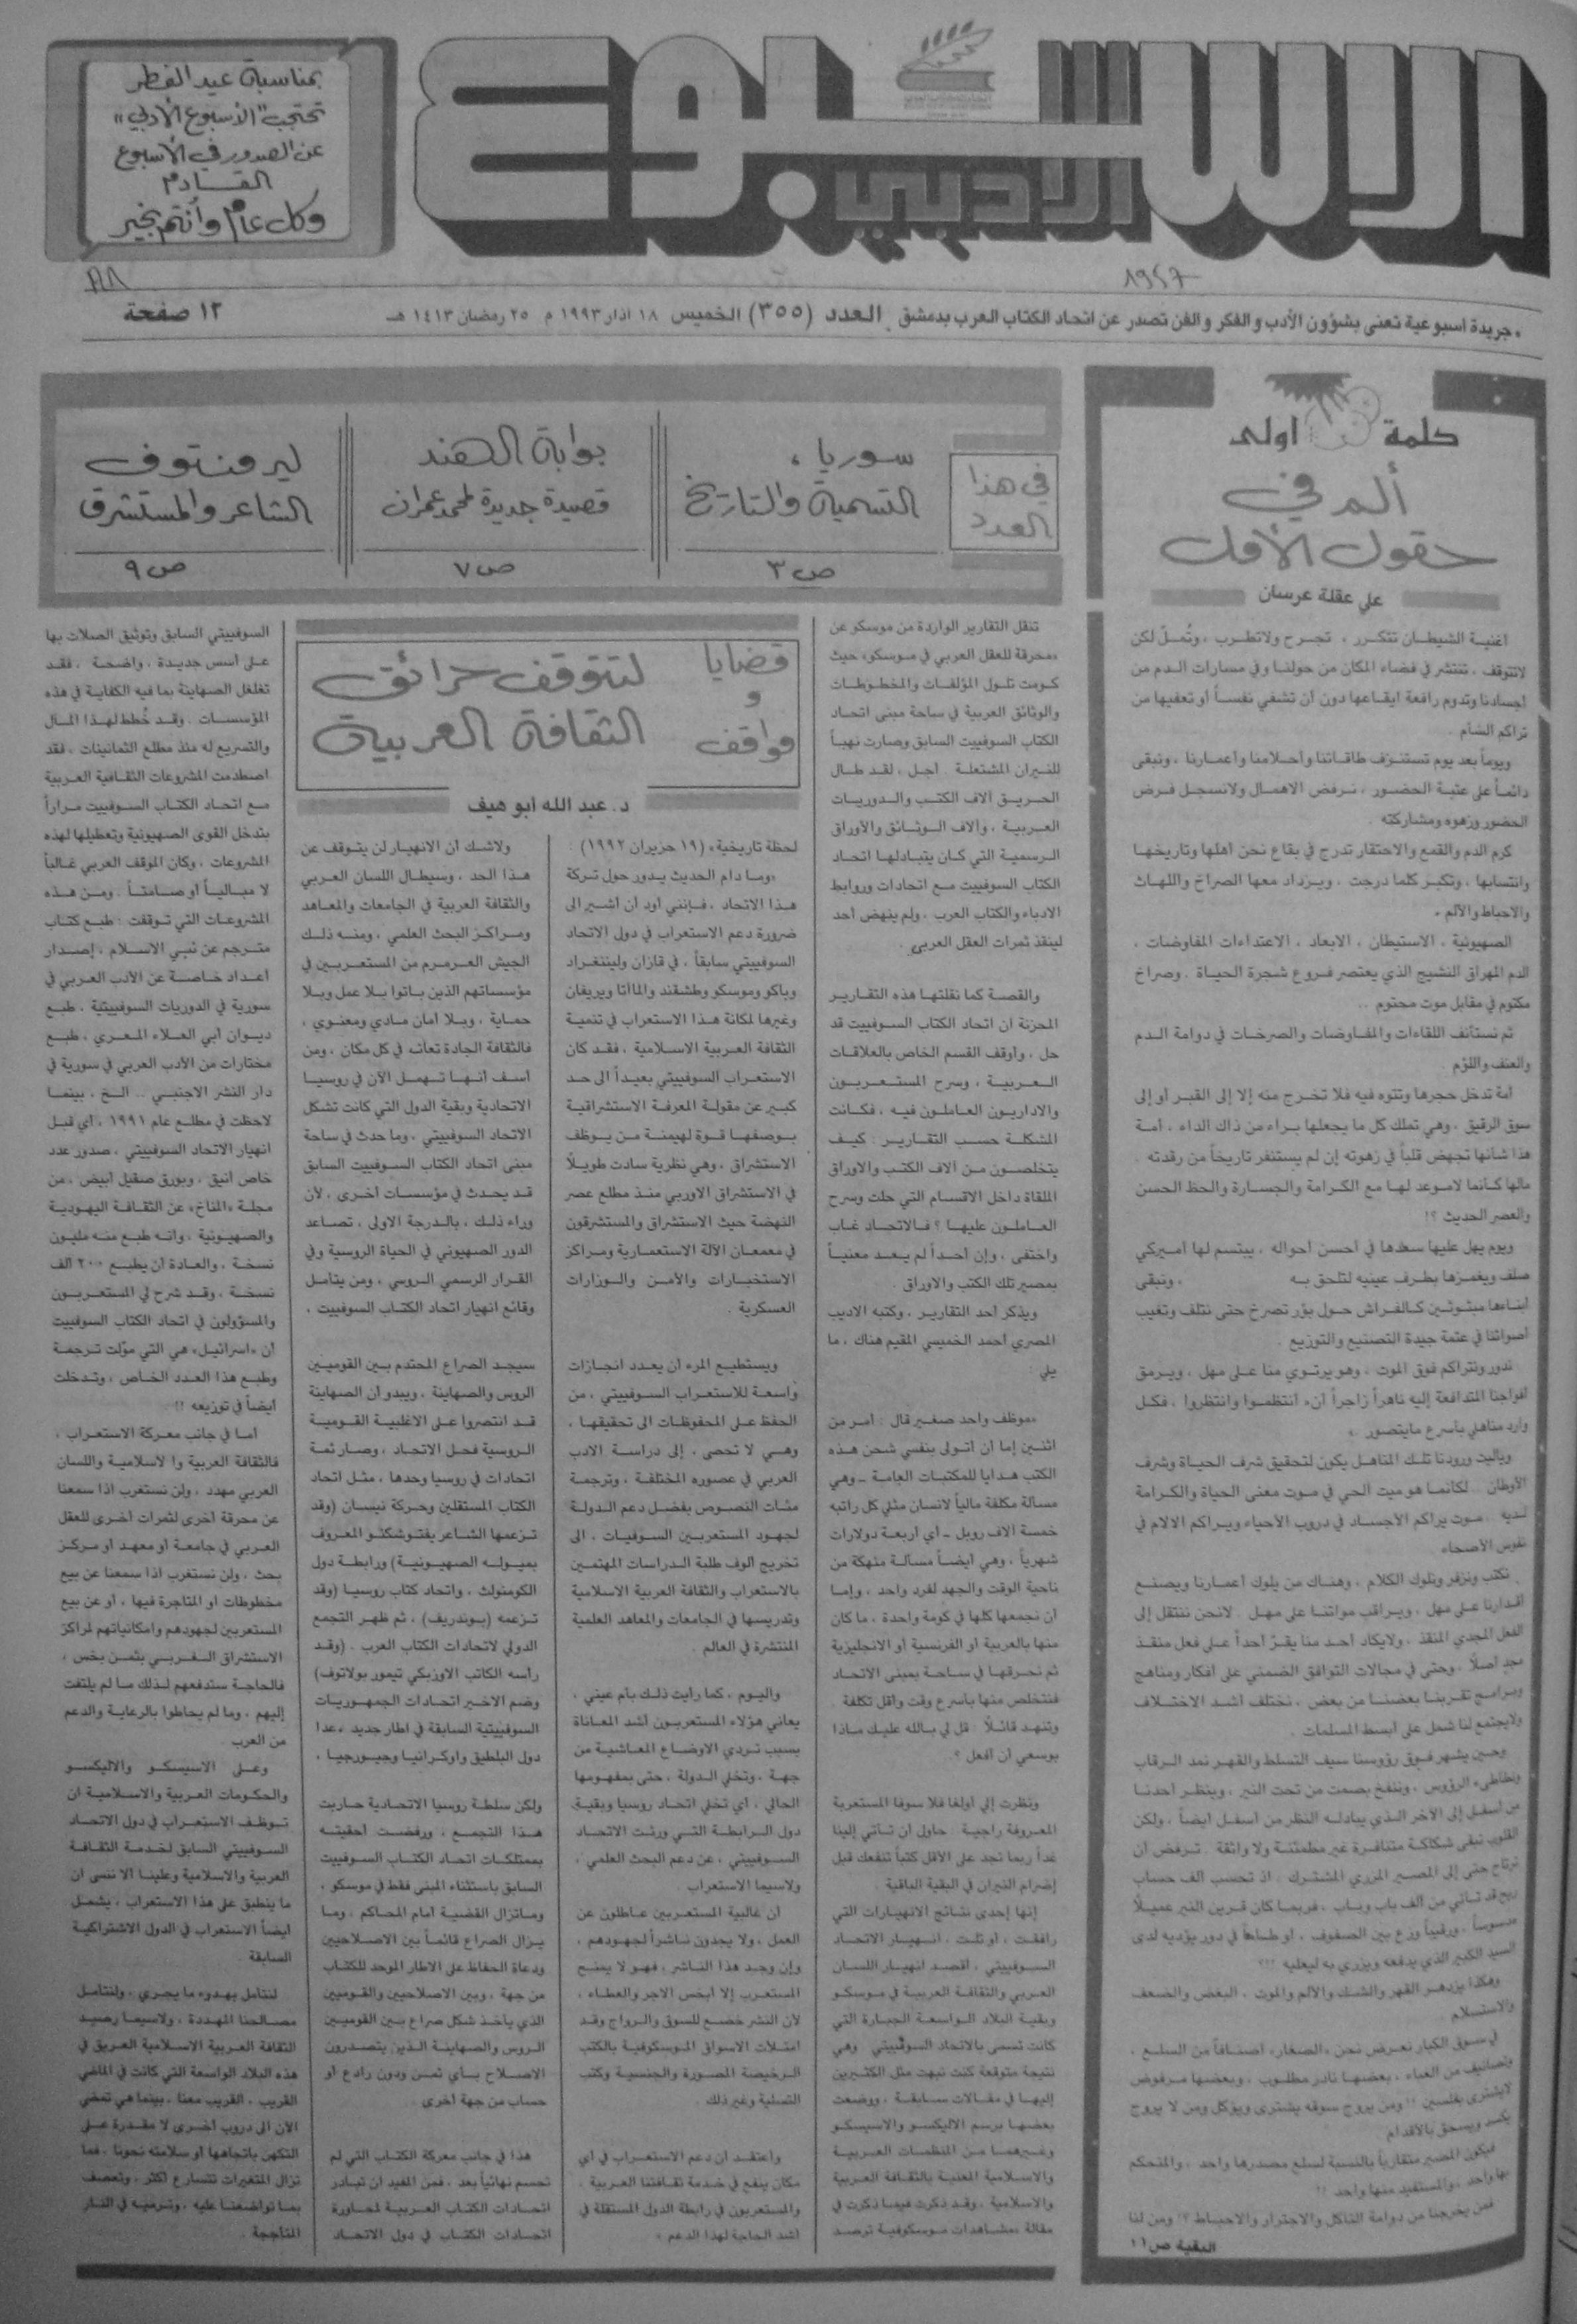 الاسبوع
الأدبي
بمناسبة عيد الفطر
تحتجب "الأسبوع الأدبي"
عن الصدور في الأسبوع
القادم
وكل عام وأنتم بخير
جريدة اسبوعية تعنى بشؤون الأدب والفكر والفن تصدر عن اتحاد الكتاب العرب بدمشق العدد (٣٥٥) الخميس ١٨ اذار ١٩٩٣ م ٢٥ رمضان ١٤١٣ هـ
١٢ صفحة
كلمة أولى
ألم في
حقول الأمل
علي عقلة عرسان
أغنية الشيطان تتكرر ، تجرح ولاتطرب ، وتُملّ لكن
لاتتوقف ، تنتشر في فضاء المكان من حولنا وفي مسارات الدم من
أجسادنا وتدوم رافعة ايقاعها دون أن تشفي نفساً أو تعفيها من
تراكم السأم .
ويوماً بعد يوم تستنزف طاقاتنا وأحلامنا وأعمارنا ، ونبقى
دائماً على عتبة الحضور ، نرفض الاهمال ولانسجل فرض
الحضور وزهوه ومشاركته .
كرم الدم والقمع والاحتقار تدرج في بقاع نحن أهلها وتاريخها
وانتسابها ، وتكبر كلما درجت ، ويزداد معها الصراخ واللهاث
والاحباط والألم .
الصهيونية ، الاستيطان ، الابعاد ، الاعتداءات المفاوضات ،
الدم المهراق النشيج الذي يعتصر فروع شجرة الحياة ، وصراخ
مكتوم في مقابل موت محتوم ..
ثم نستأنف اللقاءات والمفاوضات والصرخات في دوامة الدم
والعنف واللؤم .
أمة تدخل حجرها وتتوه فيه فلا تخرج منه إلا إلى القبر أو إلى
سوق الرقيق ، وهي تملك كل ما يجعلها براء من ذاك الداء ، أمة
هذا شأنها تجهض قلباً في زهوته إن لم يستنفر تاريخاً من رقدته .
مالها كأنما لاموعد لها مع الكرامة والجسارة والحظ الحسن
والعصر الحديث ؟!
ويوم يهل عليها سعدها في أحسن أحواله ، يبتسم لها أميركي
صلف ويغمزها بطرف عينيه لتلحق به ، ونبقى
أبناءها مبثوثين كالفراش حول بؤر تصرخ حتى نتلف وتغيب
أصواتنا في عتمة جيدة التصنيع والتوزيع .
ندور ونتراكم فوق الموت ، وهو يرتوي منا على مهل ، ويرمق
أفواجنا المتدافعة إليه ناهراً زاجراً أن « انتظموا وانتظروا ، فكل
وارد مناهلي بأسرع مايتصور » .
وياليت ورودنا تلك المناهل يكون لتحقيق شرف الحياة وشرف
الأوطان .. لكأنما هو ميت الحي في موت معنى الحياة والكرامة
لديه . موت يراكم الأجساد في دروب الأحياء ويراكم الالام في
نفوس الأصحاء .
نكتب ونزفر ونلوك الكلام ، وهناك من يلوك أعمارنا ويصنع
أقدارنا على مهل ، ويراقب مواتنا على مهل . لانحن ننتقل إلى
الفعل المجدي المنقذ ، ولايكاد أحد منا يقرّ أحداً على فعل منقذ
مجد أصلاً . وحتى في مجالات التوافق الضمني على أفكار ومناهج
وبرامج تقربنا بعضنا من بعض ، نختلف أشد الاختلاف
ولايجتمع لنا شمل على أبسط المسلمات .
وحين يشهر فوق رؤوسنا سيف التسلط والقهر نمد الرقاب
ونطاطىء الرؤوس ، وننفخ بصمت من تحت النير ، وينظر أحدنا
من أسفل إلى الآخر الذي يبادله النظر من أسفل أيضاً ، ولكن
القلوب تبقى شكاكة متنافرة غير مطمئنة ولا واثقة . ترفض أن
ترتاح حتى إلى المصير المزري المشترك ، اذ تحسب ألف حساب
ريح قد تأتي من ألف باب وباب ، فربما كان قرين النير عميلاً
مدسوساً ، ورقيباً وزع بين الصفوف ، أو طاحاً في دور يؤديه لدى
السيد الكبير الذي يدفعه ويزري به ليعليه !!؟
وهكذا يزدهر القهر والشك والألم والموت ، البغض والضعف
والاستسلام .
في سوق الكبار نعرض نحن «الصغار» أصنافاً من السلع ،
وتصانيف من الغباء ، بعضها نادر مطلوب ، وبعضها مرفوض
لايشترى بفلسين !! ومن يروج سوقه يشترى ويؤكل ومن لا يروج
يكسد ويسحق بالأقدام .
فيكون المصير متقارباً بالنسبة لسلع مصدرها واحد ، والمتحكم
بها واحد ، والمستفيد منها واحد !!
فمن يخرجنا من دوامة التآكل والاجترار والاحباط ؟! ومن لنا
البقية ص١١
في هذا
العدد
سوريا ،
التسمية والتاريخ
ص ٣
بوابة الهند
قصيدة جديدة لمحمد عمران
ص ٧
ليرمنتوف
الشاعر والمستشرق
ص ٩
قضايا
و
مواقف
لتتوقف حرائق
الثقافة العربية
د. عبد الله أبو هيف
تنقل التقارير الواردة من موسكو عن
«محرقة للعقل العربي في موسكو» حيث
كومت تلول المؤلفات والمخطوطات
والوثائق العربية في ساحة مبنى اتحاد
الكتاب السوفييت السابق وصارت نهباً
للنيران المشتعلة . أجل ، لقد طال
الحريق آلاف الكتب والدوريات
العربية ، وآلاف الوثائق والأوراق
الرسمية التي كان يتبادلها اتحاد
الكتاب السوفييت مع اتحادات وروابط
الادباء والكتاب العرب . ولم ينهض أحد
لينقذ ثمرات العقل العربي .
والقصة كما نقلتها هذه التقارير
المحزنة ان اتحاد الكتاب السوفييت قد
حل ، وأوقف القسم الخاص بالعلاقات
العربية ، وسرح المستعربون
والاداريون العاملون فيه ، فكانت
المشكلة حسب التقارير : كيف
يتخلصون من آلاف الكتب والاوراق
الملقاة داخل الاقسام التي حلت وسرح
العاملون عليها ؟ فالاتحاد غاب
واختفى ، وإن أحداً لم يعد معنياً
بمصير تلك الكتب والاوراق .
ويذكر أحد التقارير ، وكتبه الاديب
المصري أحمد الخميسي المقيم هناك ، ما
يلي :
«موظف واحد صغير قال : أمر من
اثنين إما أن أتولى بنفسي شحن هذه
الكتب هدايا للمكتبات العامة – وهي
مسألة مكلفة مالياً لانسان مثلي كل راتبه
خمسة آلاف روبل – أي أربعة دولارات
شهرياً ، وهي أيضاً مسألة منهكة من
ناحية الوقت والجهد لفرد واحد ، وإما
أن نجمعها كلها في كومة واحدة ، ما كان
منها بالعربية أو الفرنسية أو الانجليزية
ثم نحرقها في ساحة بمبنى الاتحاد
فنتخلص منها بأسرع وقت وأقل تكلفة .
وتنهد قائلاً : قل لي بالله عليك ماذا
بوسعي أن أفعل ؟
ونظرت إلي أولغا فلا سوفا المستعربة
المعروفة راجية : حاول أن تأتي إلينا
غداً ربما تجد على الأقل كتباً تنفعك قبل
إضرام النيران في البقية الباقية .
إنها إحدى نتائج الانهيارات التي
رافقت ، أو تلت ، انهيار الاتحاد
السوفييتي ، أقصد انهيار اللسان
العربي والثقافة العربية في موسكو
وبقية البلاد الواسعة الجبارة التي
كانت تسمى بالاتحاد السوفييتي . وهي
نتيجة متوقعة كنت نبهت مثل الكثيرين
إليها في مقالات سابقة ، ووضعت
بعضها برسم الاليكسو والاسيسكو
وغيرهما من المنظمات العربية
والاسلامية المعنية بالثقافة العربية
والاسلامية . وقد ذكرت فيما ذكرت في
مقالة «مشاهدات موسكوفية ترصد
لحظة تاريخية» (١٩ حزيران ١٩٩٢) :
«وما دام الحديث يدور حول تركة
هذا الاتحاد ، فإنني أود أن أشير الى
ضرورة دعم الاستعراب في دول الاتحاد
السوفييتي سابقاً ، في قازان ولينغراد
وباكو وموسكو وطشقند وألماآتا ويريفان
وغيرها لمكانة هذا الاستعراب في تنمية
الثقافة العربية الاسلامية ، فقد كان
الاستعراب السوفييتي بعيداً الى حد
كبير عن مقولة المعرفة الاستشراقية
بوصفها قوة لهيمنة من يوظف
الاستشراق ، وهي نظرية سادت طويلاً
في الاستشراق الاوربي منذ مطلع عصر
النهضة حيث الاستشراق والمستشرقون
في معمعان الآلة الاستعمارية ومراكز
الاستخبارات والأمن والوزارات
العسكرية .
ويستطيع المرء أن يعدد انجازات
واسعة للاستعراب السوفييتي ، من
الحفظ على المحفوظات الى تحقيقها ،
وهي لا تحصى ، إلى دراسة الادب
العربي في عصوره المختلفة ، وترجمة
مئات النصوص بفضل دعم الدولة
لجهود المستعربين السوفيات ، الى
تخريج الوف طلبة الدراسات المهتمين
بالاستعراب والثقافة العربية الاسلامية
وتدريسها في الجامعات والمعاهد العلمية
المنتشرة في العالم .
واليوم ، كما رأيت ذلك بأم عيني ،
يعاني هؤلاء المستعربون أشد المعاناة
بسبب تردي الاوضاع المعاشية من
جهة ، وتخلي الدولة ، حتى بمفهومها
الحالي ، أي تخلي اتحاد روسيا وبقية
دول الرابطة التي ورثت الاتحاد
السوفييتي ، عن دعم البحث العلمي ،
ولاسيما الاستعراب .
أن غالبية المستعربين عاطلون عن
العمل ، ولا يجدون ناشراً لجهودهم ،
وإن وجد هذا الناشر ، فهو لا يمنح
المستعرب إلا أبخس الاجر والعطاء ،
لأن النشر خضع للسوق والرواج وقد
امتلات الاسواق الموسكوفية بالكتب
الرخيصة المصورة والجنسية وكتب
التسلية وغير ذلك .
وأعتقد أن دعم الاستعراب في أي
مكان ينفع في خدمة ثقافتنا العربية ،
والمستعربون في رابطة الدول المستقلة في
أشد الحاجة لهذا الدعم » .
ولاشك أن الانهيار لن يتوقف عن
هذا الحد ، وسيطال اللسان العربي
والثقافة العربية في الجامعات والمعاهد
ومراكز البحث العلمي ، ومنه ذلك
الجيش العرمرم من المستعربين في
مؤسساتهم الذين باتوا بلا عمل وبلا
حماية ، وبلا أمان مادي ومعنوي ،
فالثقافة الجادة تعاني في كل مكان ، ومن
أسف أنها تهمل الآن في روسيا
الاتحادية وبقية الدول التي كانت تشكل
الاتحاد السوفييتي ، وما حدث في ساحة
مبنى اتحاد الكتاب السوفييت السابق
قد يحدث في مؤسسات أخرى ، لأن
وراء ذلك ، بالدرجة الاولى ، تصاعد
الدور الصهيوني في الحياة الروسية وفي
القرار الرسمي الروسي ، ومن يتأمل
وقائع انهيار اتحاد الكتاب السوفييت ،
سيجد الصراع المحتدم بين القوميين
الروس والصهاينة ، ويبدو أن الصهاينة
قد انتصروا على الاغلبية القومية
الروسية فحل الاتحاد ، وصار ثمة
اتحادات في روسيا وحدها ، مثل اتحاد
الكتاب المستقلين وحركة نيسان (وقد
تزعمها الشاعر يفتوشنكو المعروف
بميوله الصهيونية) ورابطة دول
الكومنولث ، واتحاد كتاب روسيا (وقد
تزعمه (بوندريف) ، ثم ظهر التجمع
الدولي لاتحادات الكتاب العرب . (وقد
رأسه الكاتب الاوزبكي تيمور بولاتوف)
وضم الاخير اتحادات الجمهوريات
السوفييتية السابقة في اطار جديد ، عدا
دول البلطيق واوكرانيا وجيورجيا ،
ولكن سلطة روسيا الاتحادية حاربت
هذا التجمع ، ورفضت أحقيته
بممتلكات اتحاد الكتاب السوفييت
السابق باستثناء المبنى فقط في موسكو ،
وماتزال القضية امام المحاكم . وما
يزال الصراع قائماً بين الاصلاحيين
ودعاة الحفاظ على الاطار الموحد للكتاب
من جهة ، وبين الاصلاحيين والقوميين
الذي يأخذ شكل صراع بين القوميين
الروس والصهاينة الذين يتصدرون
الاصلاح بأي ثمن ودون رادع أو
حساب من جهة أخرى .
هذا في جانب معركة الكتاب التي لم
تحسم نهائياً بعد ، فمن المفيد ان تبادر
اتحادات الكتاب العربية لمحاورة
اتحادات الكتاب في دول الاتحاد
السوفييتي السابق وتوثيق الصلات بها
على أسس جديدة ، واضحة ، فقد
تغلغل الصهاينة بما فيه الكفاية في هذه
المؤسسات . وقد خُطط لهذا المآل
والتسريع له منذ مطلع الثمانينات ، فقد
اصطدمت المشروعات الثقافية العربية
مع اتحاد الكتاب السوفييت مراراً
بتدخل القوى الصهيونية وتعطيلها لهذه
المشروعات ، وكان الموقف العربي غالباً
لا مبالياً أو صامتاً . ومن هذه
المشروعات التي توقفت : طبع كتاب
مترجم عن نبي الاسلام ، إصدار
أعداد خاصة عن الأدب العربي في
سورية في الدوريات السوفييتية ، طبع
ديوان أبي العلاء المعري ، طبع
مختارات من الأدب العربي في سورية في
دار النشر الاجنبي .. الخ . بينما
لاحظت في مطلع عام ١٩٩١ ، أي قبل
انهيار الاتحاد السوفييتي ، صدور عدد
خاص أنيق ، وبورق صقيل أبيض ، من
مجلة «المناخ» عن الثقافة اليهودية
والصهيونية ، وأنه طبع منه مليون
نسخة ، والعادة أن يطبع ٢٠٠ ألف
نسخة ، وقد شرح لي المستعربون
والمسؤولون في اتحاد الكتاب السوفييت
أن «اسرائيل» هي التي موّلت ترجمة
وطبع هذا العدد الخاص ، وتدخلت
أيضاً في توزيعه !!
أما في جانب معركة الاستعراب ،
فالثقافة العربية والاسلامية واللسان
العربي مهدد ، ولن نستغرب اذا سمعنا
عن محرقة أخرى لثمرات أخرى للعقل
العربي في جامعة أو معهد أو مركز
بحث ، ولن نستغرب اذا سمعنا عن بيع
مخطوطات او المتاجرة فيها ، أو عن بيع
المستعربين لجهودهم وامكانياتهم لمراكز
الاستشراق الغربي بثمن بخس ،
فالحاجة ستدفعهم لذلك ما لم يلتفت
إليهم ، وما لم يحاطوا بالرعاية والدعم
من العرب .
وعلى الاسيسكو والاليكسو
والحكومات العربية والاسلامية ان
توظف الاستعراب في دول الاتحاد
السوفييتي السابق لخدمة الثقافة
العربية والاسلامية وعلينا الا ننسى ان
ما ينطبق على هذا الاستعراب ، يشمل
أيضاً الاستعراب في الدول الاشتراكية
السابقة .
لنتأمل بهدوء ما يجري ، ولنتأمل
مصالحنا المهددة ، ولاسيما رصيد
الثقافة العربية الاسلامية العريق في
هذه البلاد الواسعة التي كانت في الماضي
القريب ، القريب معنا ، بينما هي تمضي
الآن الى دروب أخرى لا مقدرة على
التكهن باتجاهها أو سلامته نحونا ، فما
تزال المتغيرات تتسارع أكثر ، وتعصف
بما تواضعنا عليه ، وترميه في النار
المتأججة .